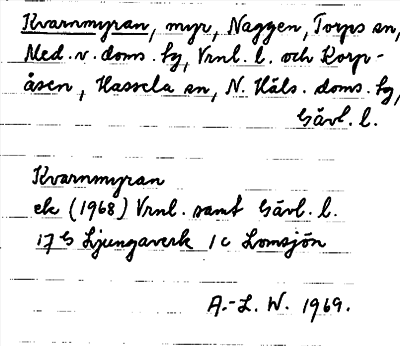 Kvarnmyran, myr, Naggen, Torps sn,
Med. v. doms. sg, Vrnl. l. och Korp-
åsen, Hassela sn, N. Häls. doms. sg,
Gävl. l.
Kvarnmyran
ek (1968) Vrnl. samt Gävl. l.
17 G Ljungaverk 1c Lomsjön
A.-L. W. 1969.